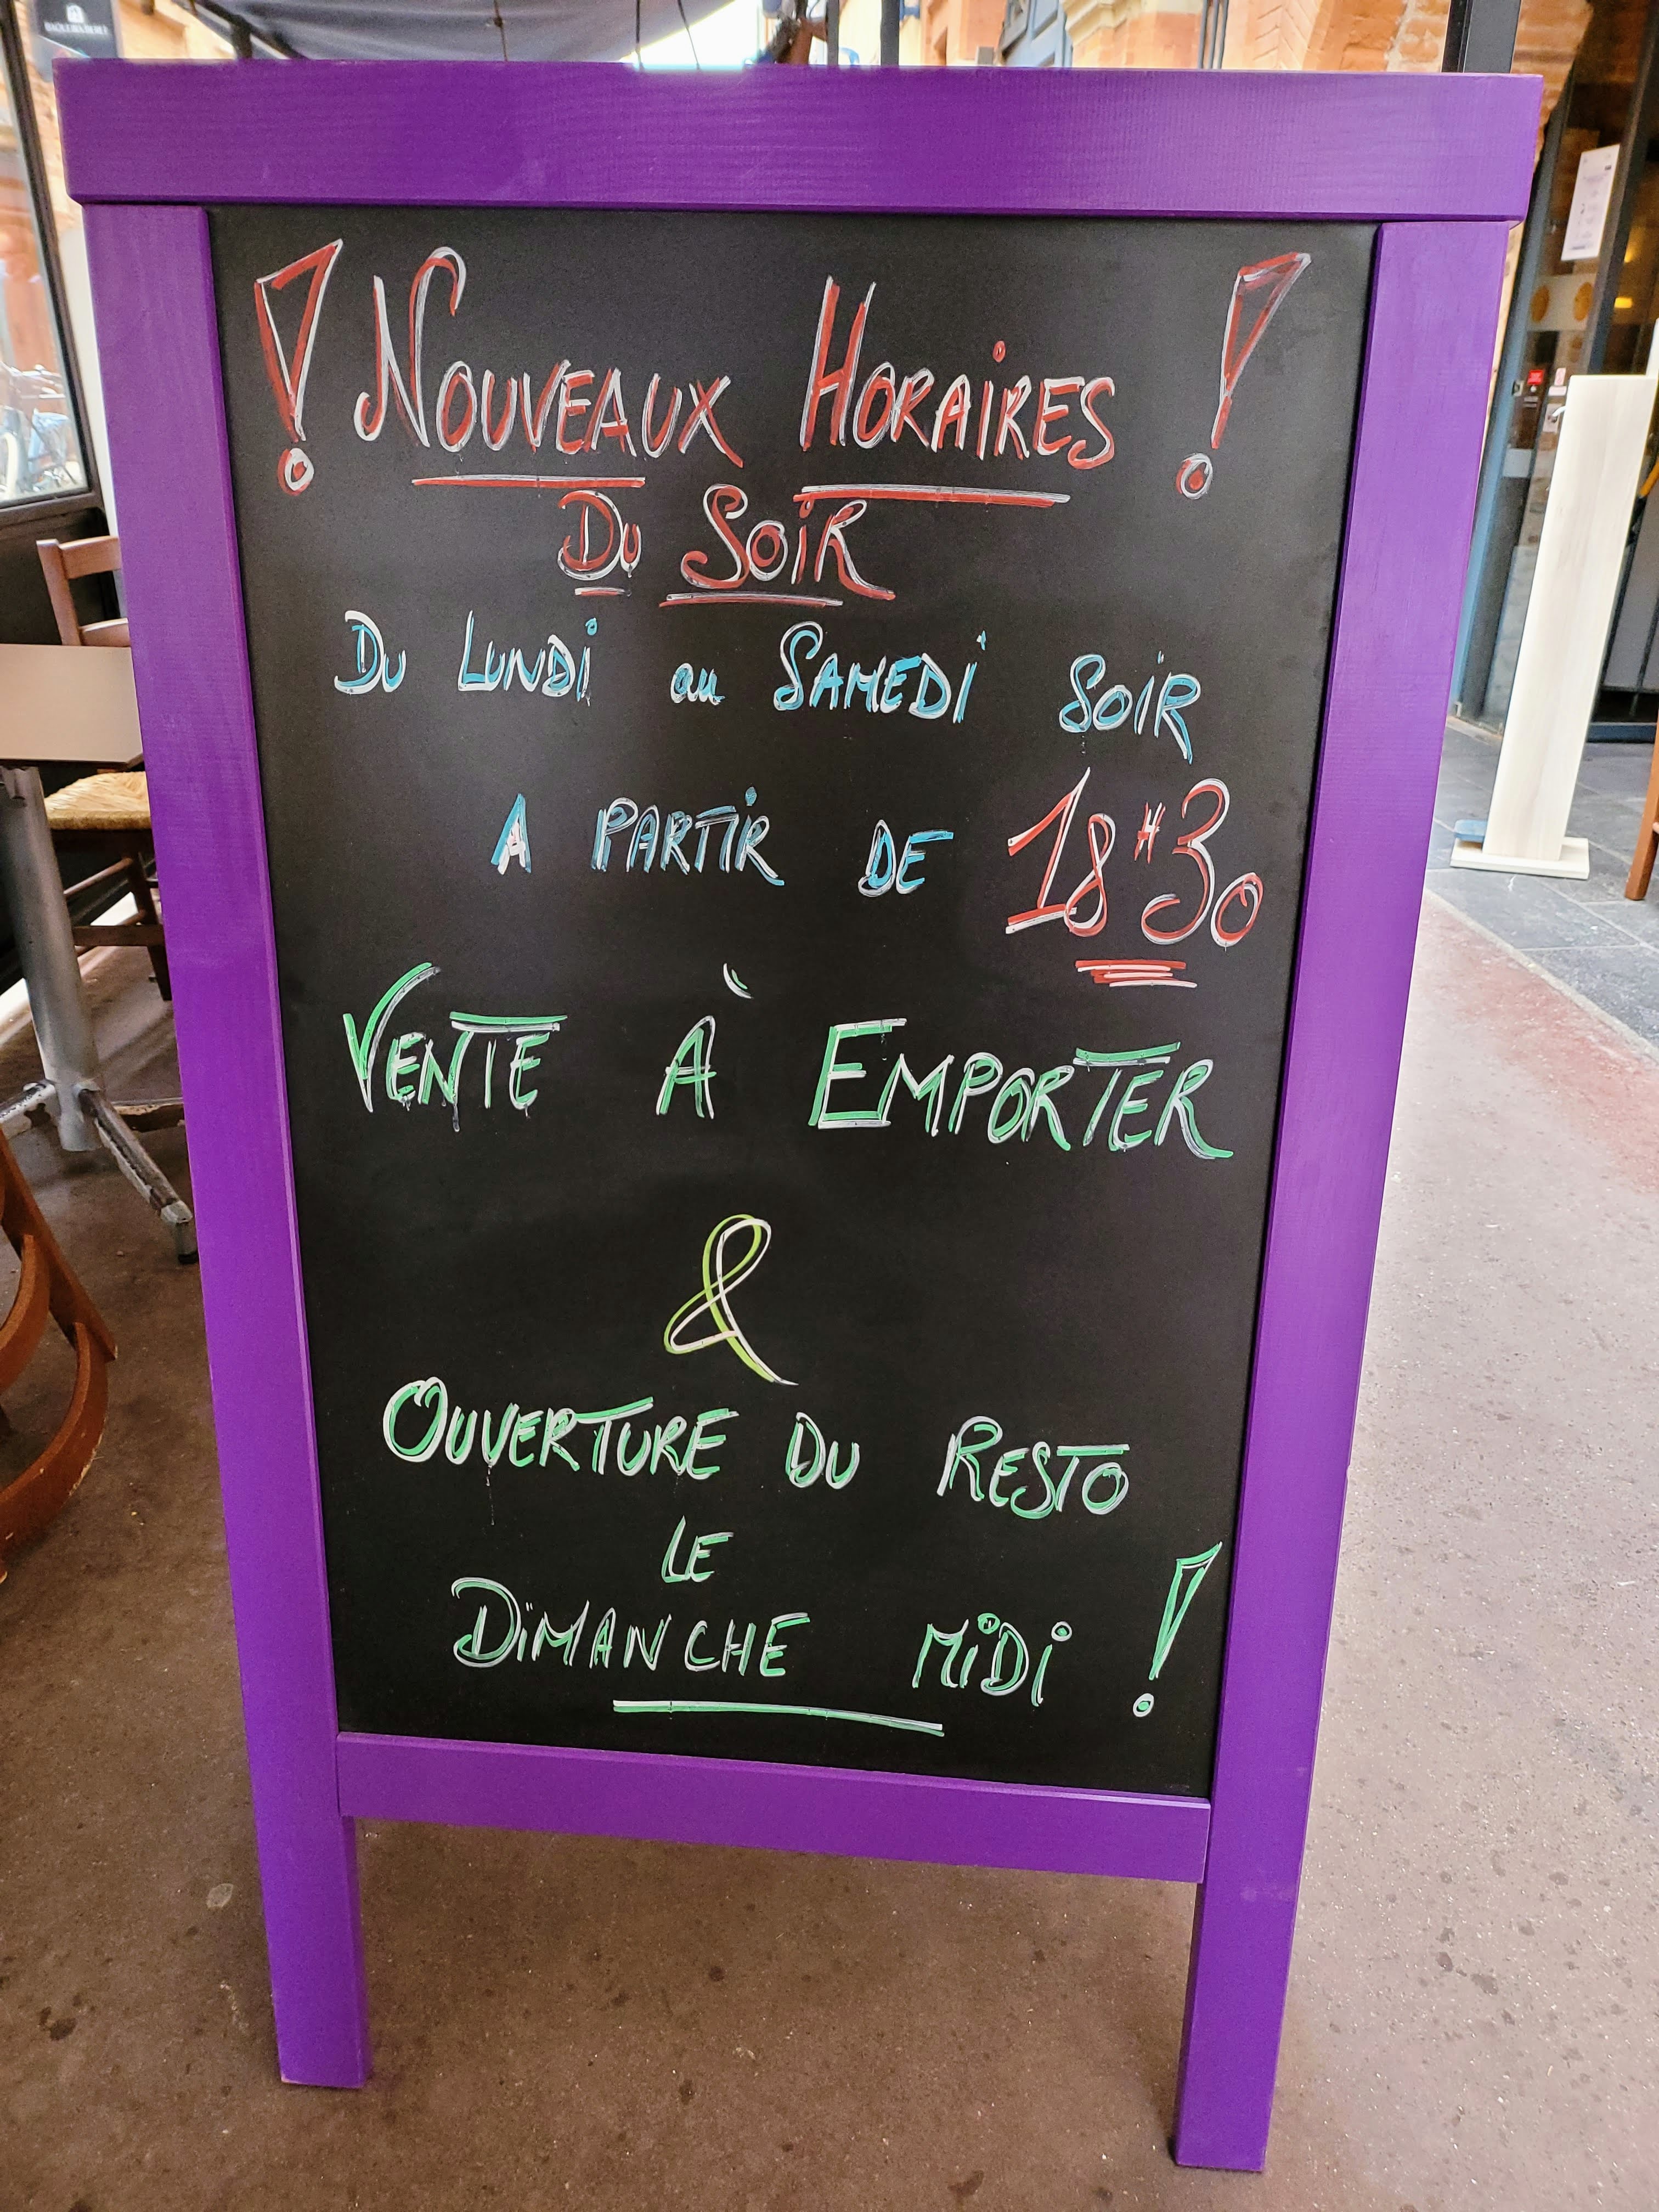 ! Nouveaux Horaires !
Du Soir
Du Lundi au Samedi Soir
A partir de 18H30
Vente À Emporter
&
Ouverture du Resto
Le
Dimanche Midi !